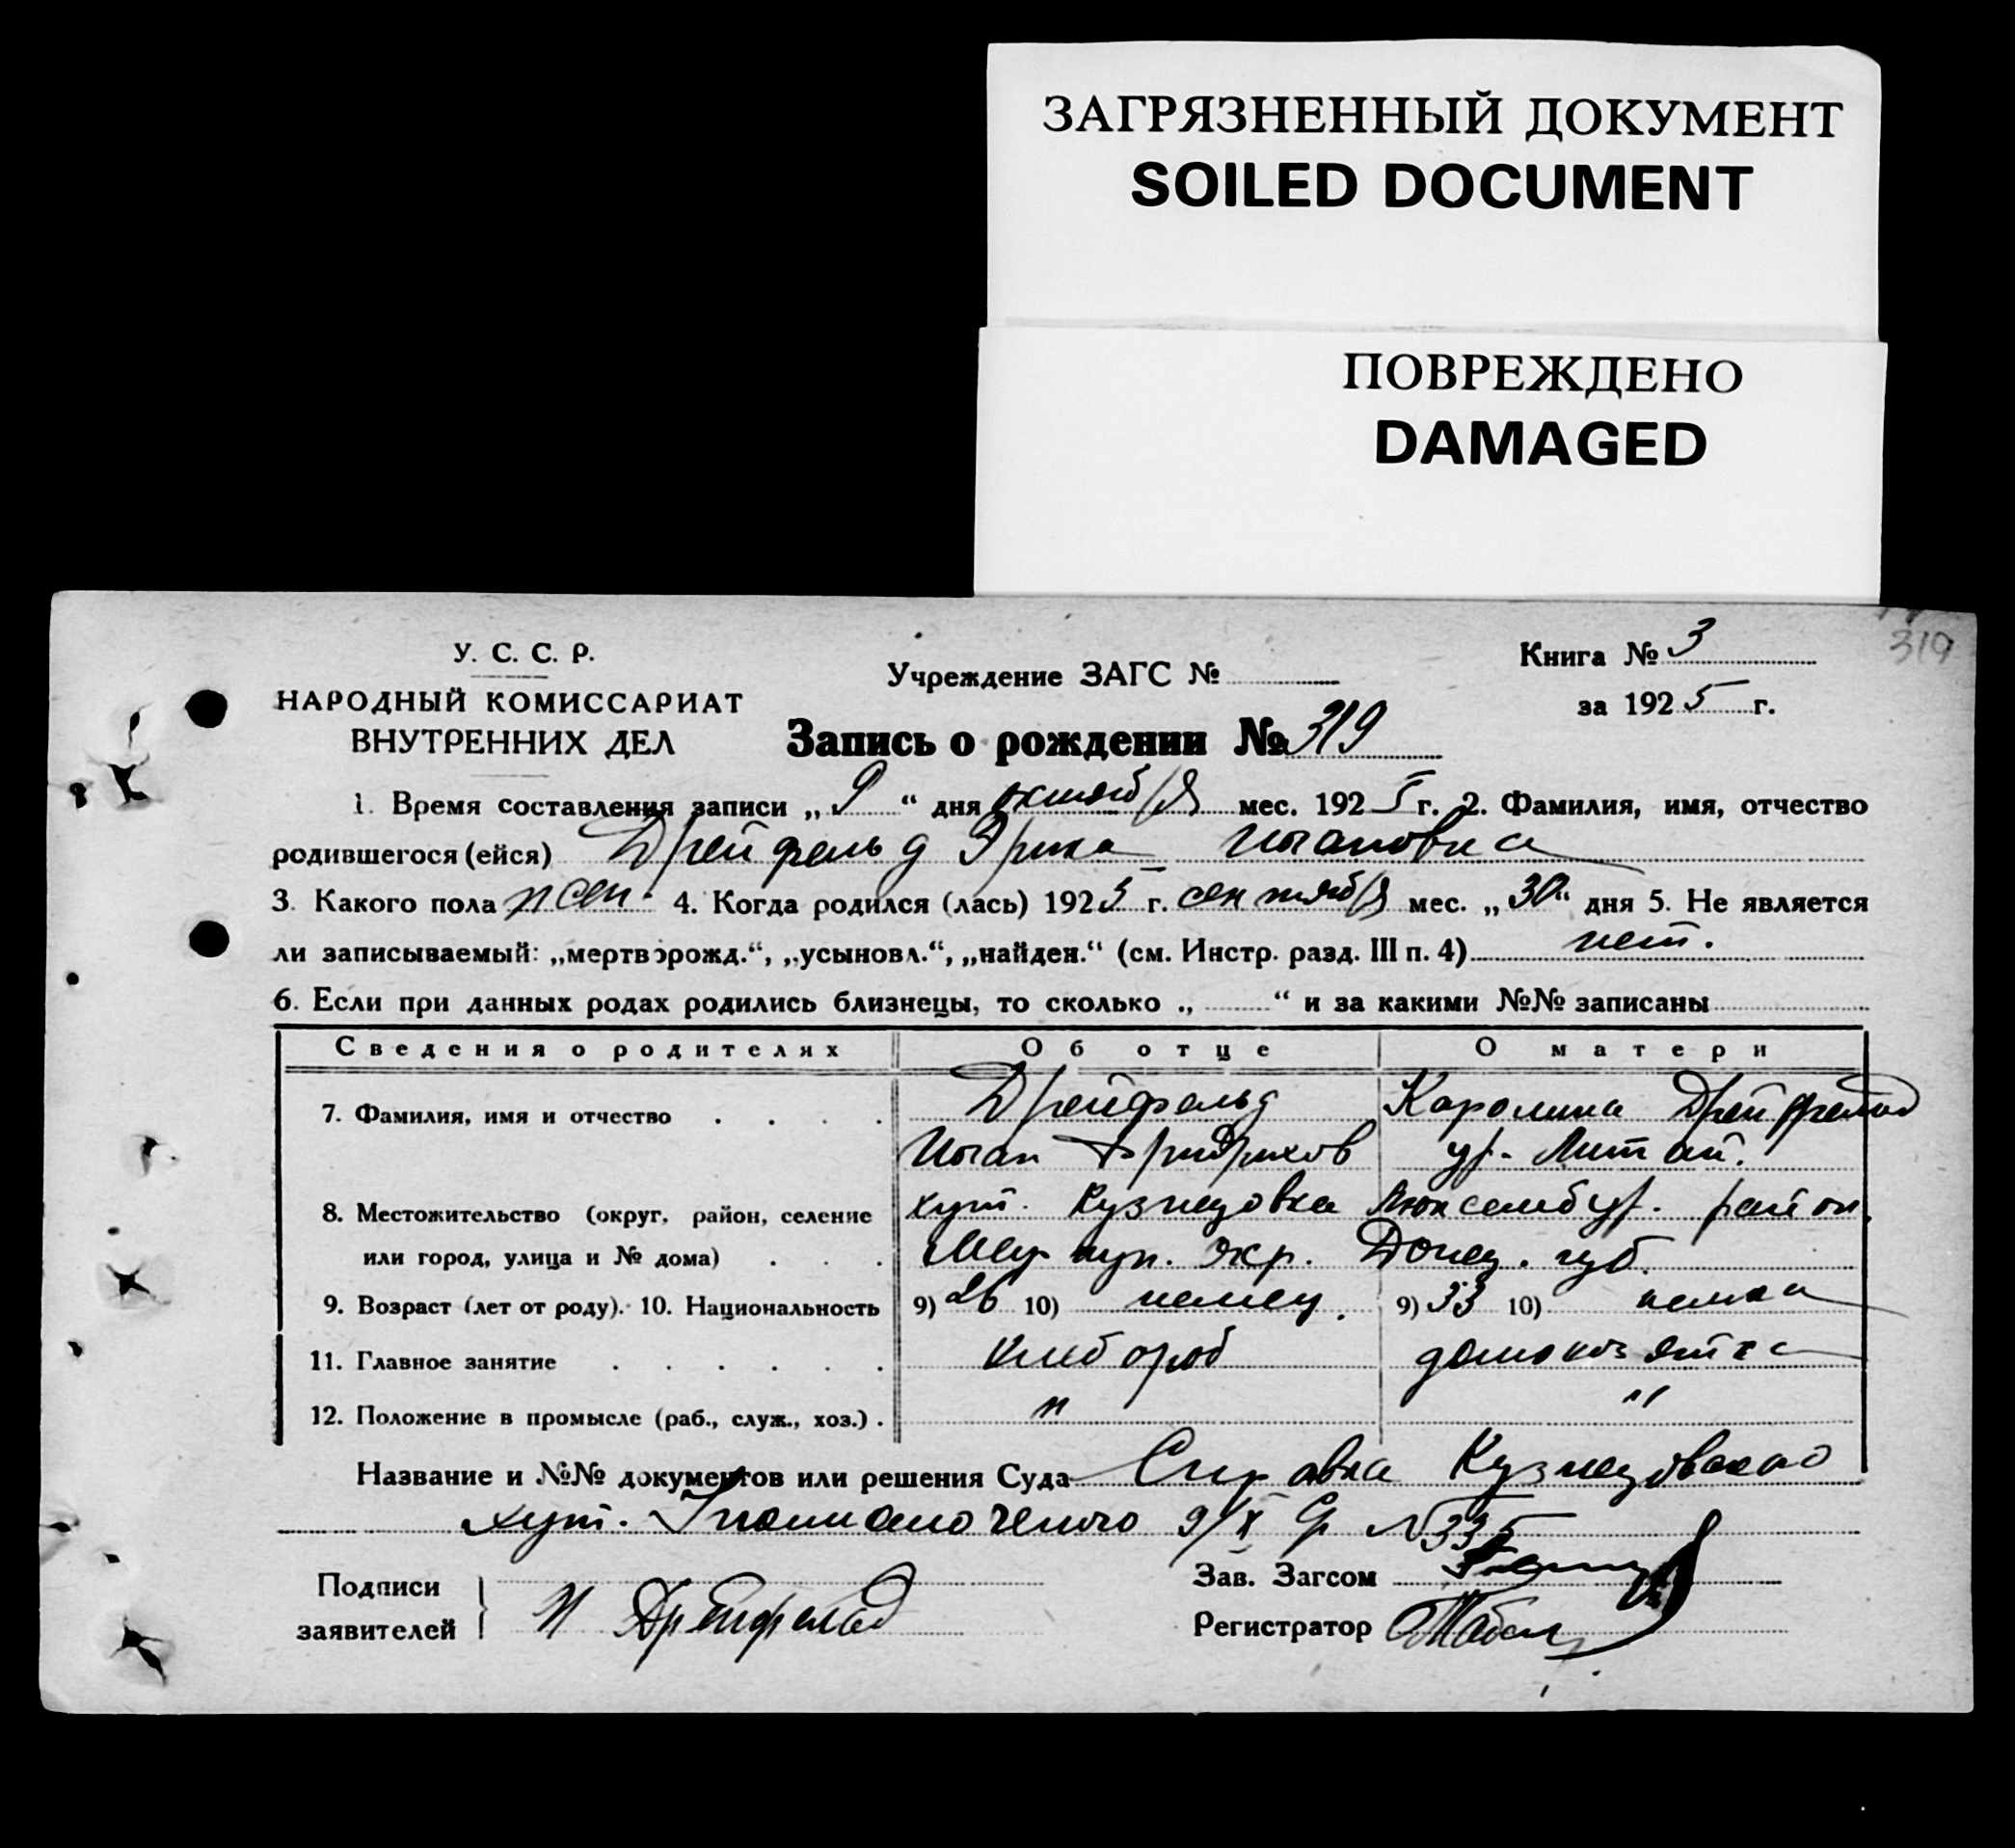 ЗАГРЯЗНЕННЫЙ ДОКУМЕНТ
SOILED DOCUMENT
ПОВРЕЖДЕНО
DAMAGED
319
У. С. С. Р.
НАРОДНЫЙ КОМИССАРИАТ
ВНУТРЕННИХ ДЕЛ
Учреждение ЗАГС №
Книга № 3
за 1925 г.
Запись о рождении № 319
1. Время составления записи „ 9 “ дня октября мес. 1925 г. 2. Фамилия, имя, отчество
родившегося (ейся) Дрейфельд Эрика Иогановна
3. Какого пола жен. 4. Когда родился (лась) 1925 г. сентября мес. „ 30 “ дня 5. Не является
ли записываемый: „мертворожд.“, „усыновл.“, „найден.“ (см. Инстр. разд. III п. 4) нет.
6. Если при данных родах родились близнецы, то сколько „ “ и за какими №№ записаны
Сведения о родителях Об отце О матери
7. Фамилия, имя и отчество Дрейфельд Каролина Дрейфельд
Иоган Фридрихов ур.
8. Местожительство (округ, район, селение хут. Кузнецовка Люксембур. район.
или город, улица и № дома) Мариуп. Окр. Донец. губ.
9. Возраст (лет от роду). 10. Национальность 9) 26 10) немец. 9) 33 10) немка
11. Главное занятие хлебороб домохозяйка
12. Положение в промысле (раб., служ., хоз.) . " "
Название и №№ документов или решения Суда Справка Кузнецовского
хут. Уполномоченого 9/X № 335
Подписи
заявителей И Дрейфельд
Зав. Загсом
Регистратор